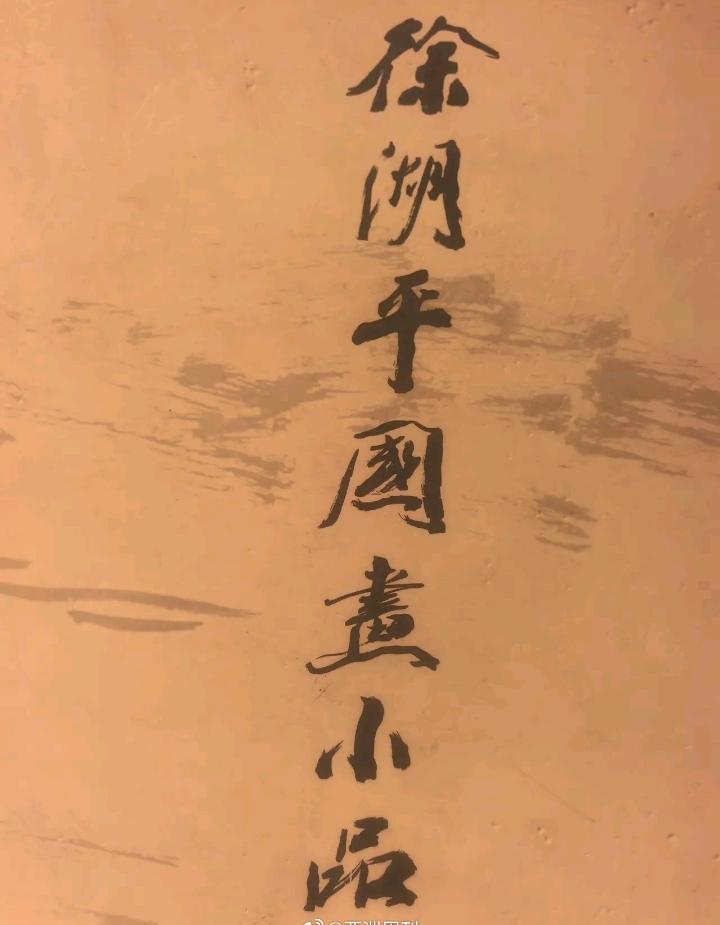 徐湖平國畫小品